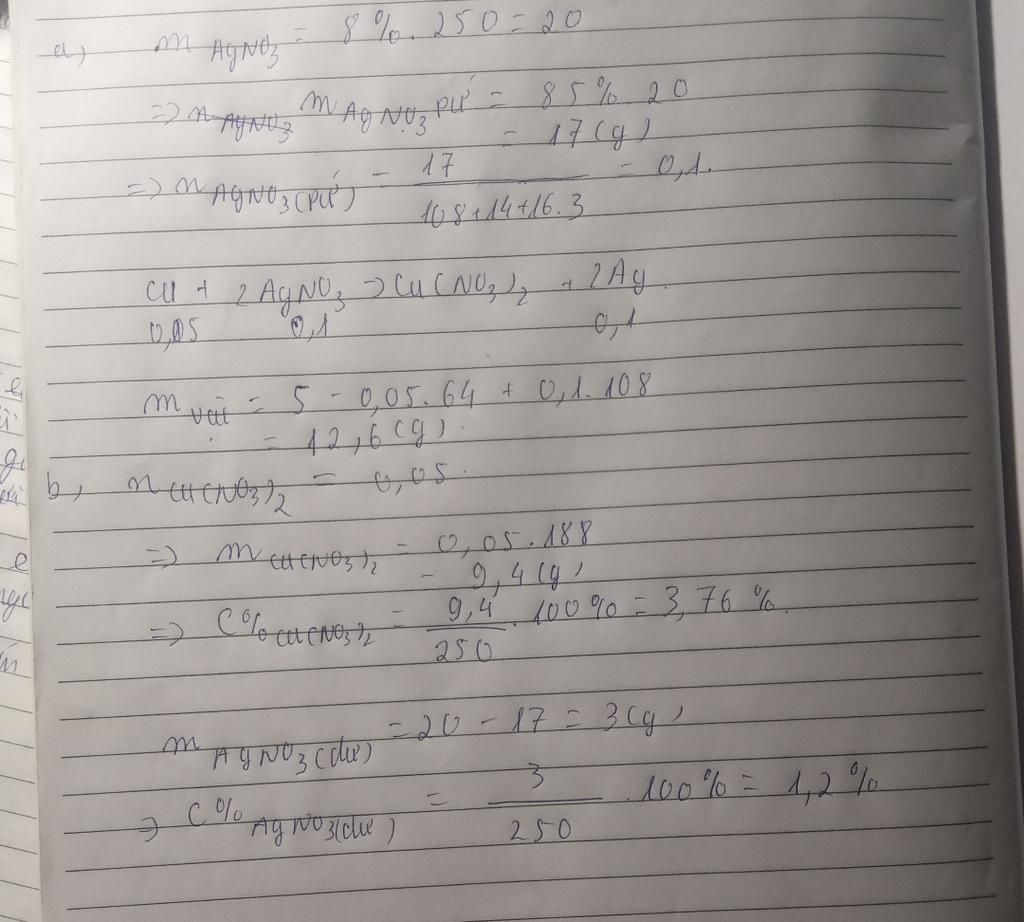 a, m AgNO3 = 8%. 250 = 20
=> n AgNO3 m AgNO3 pư = 85%. 20
= 17 (g)
=> n AgNO3 (pư) = 17 / 108+14+16.3 = 0,1.
Cu + 2AgNO3 -> Cu(NO3)2 + 2Ag
0,05 0,1 0,1
m vật = 5 - 0,05.64 + 0,1.108
= 12,6 (g).
b, n Cu(NO3)2 = 0,05.
=> m Cu(NO3)2 = 0,05.188
= 9,4 (g)
=> C% Cu(NO3)2 = 9,4 / 250 . 100% = 3,76 %.
m AgNO3 (dư) = 20 - 17 = 3 (g)
=> C% AgNO3 (dư) = 3 / 250 . 100% = 1,2 %